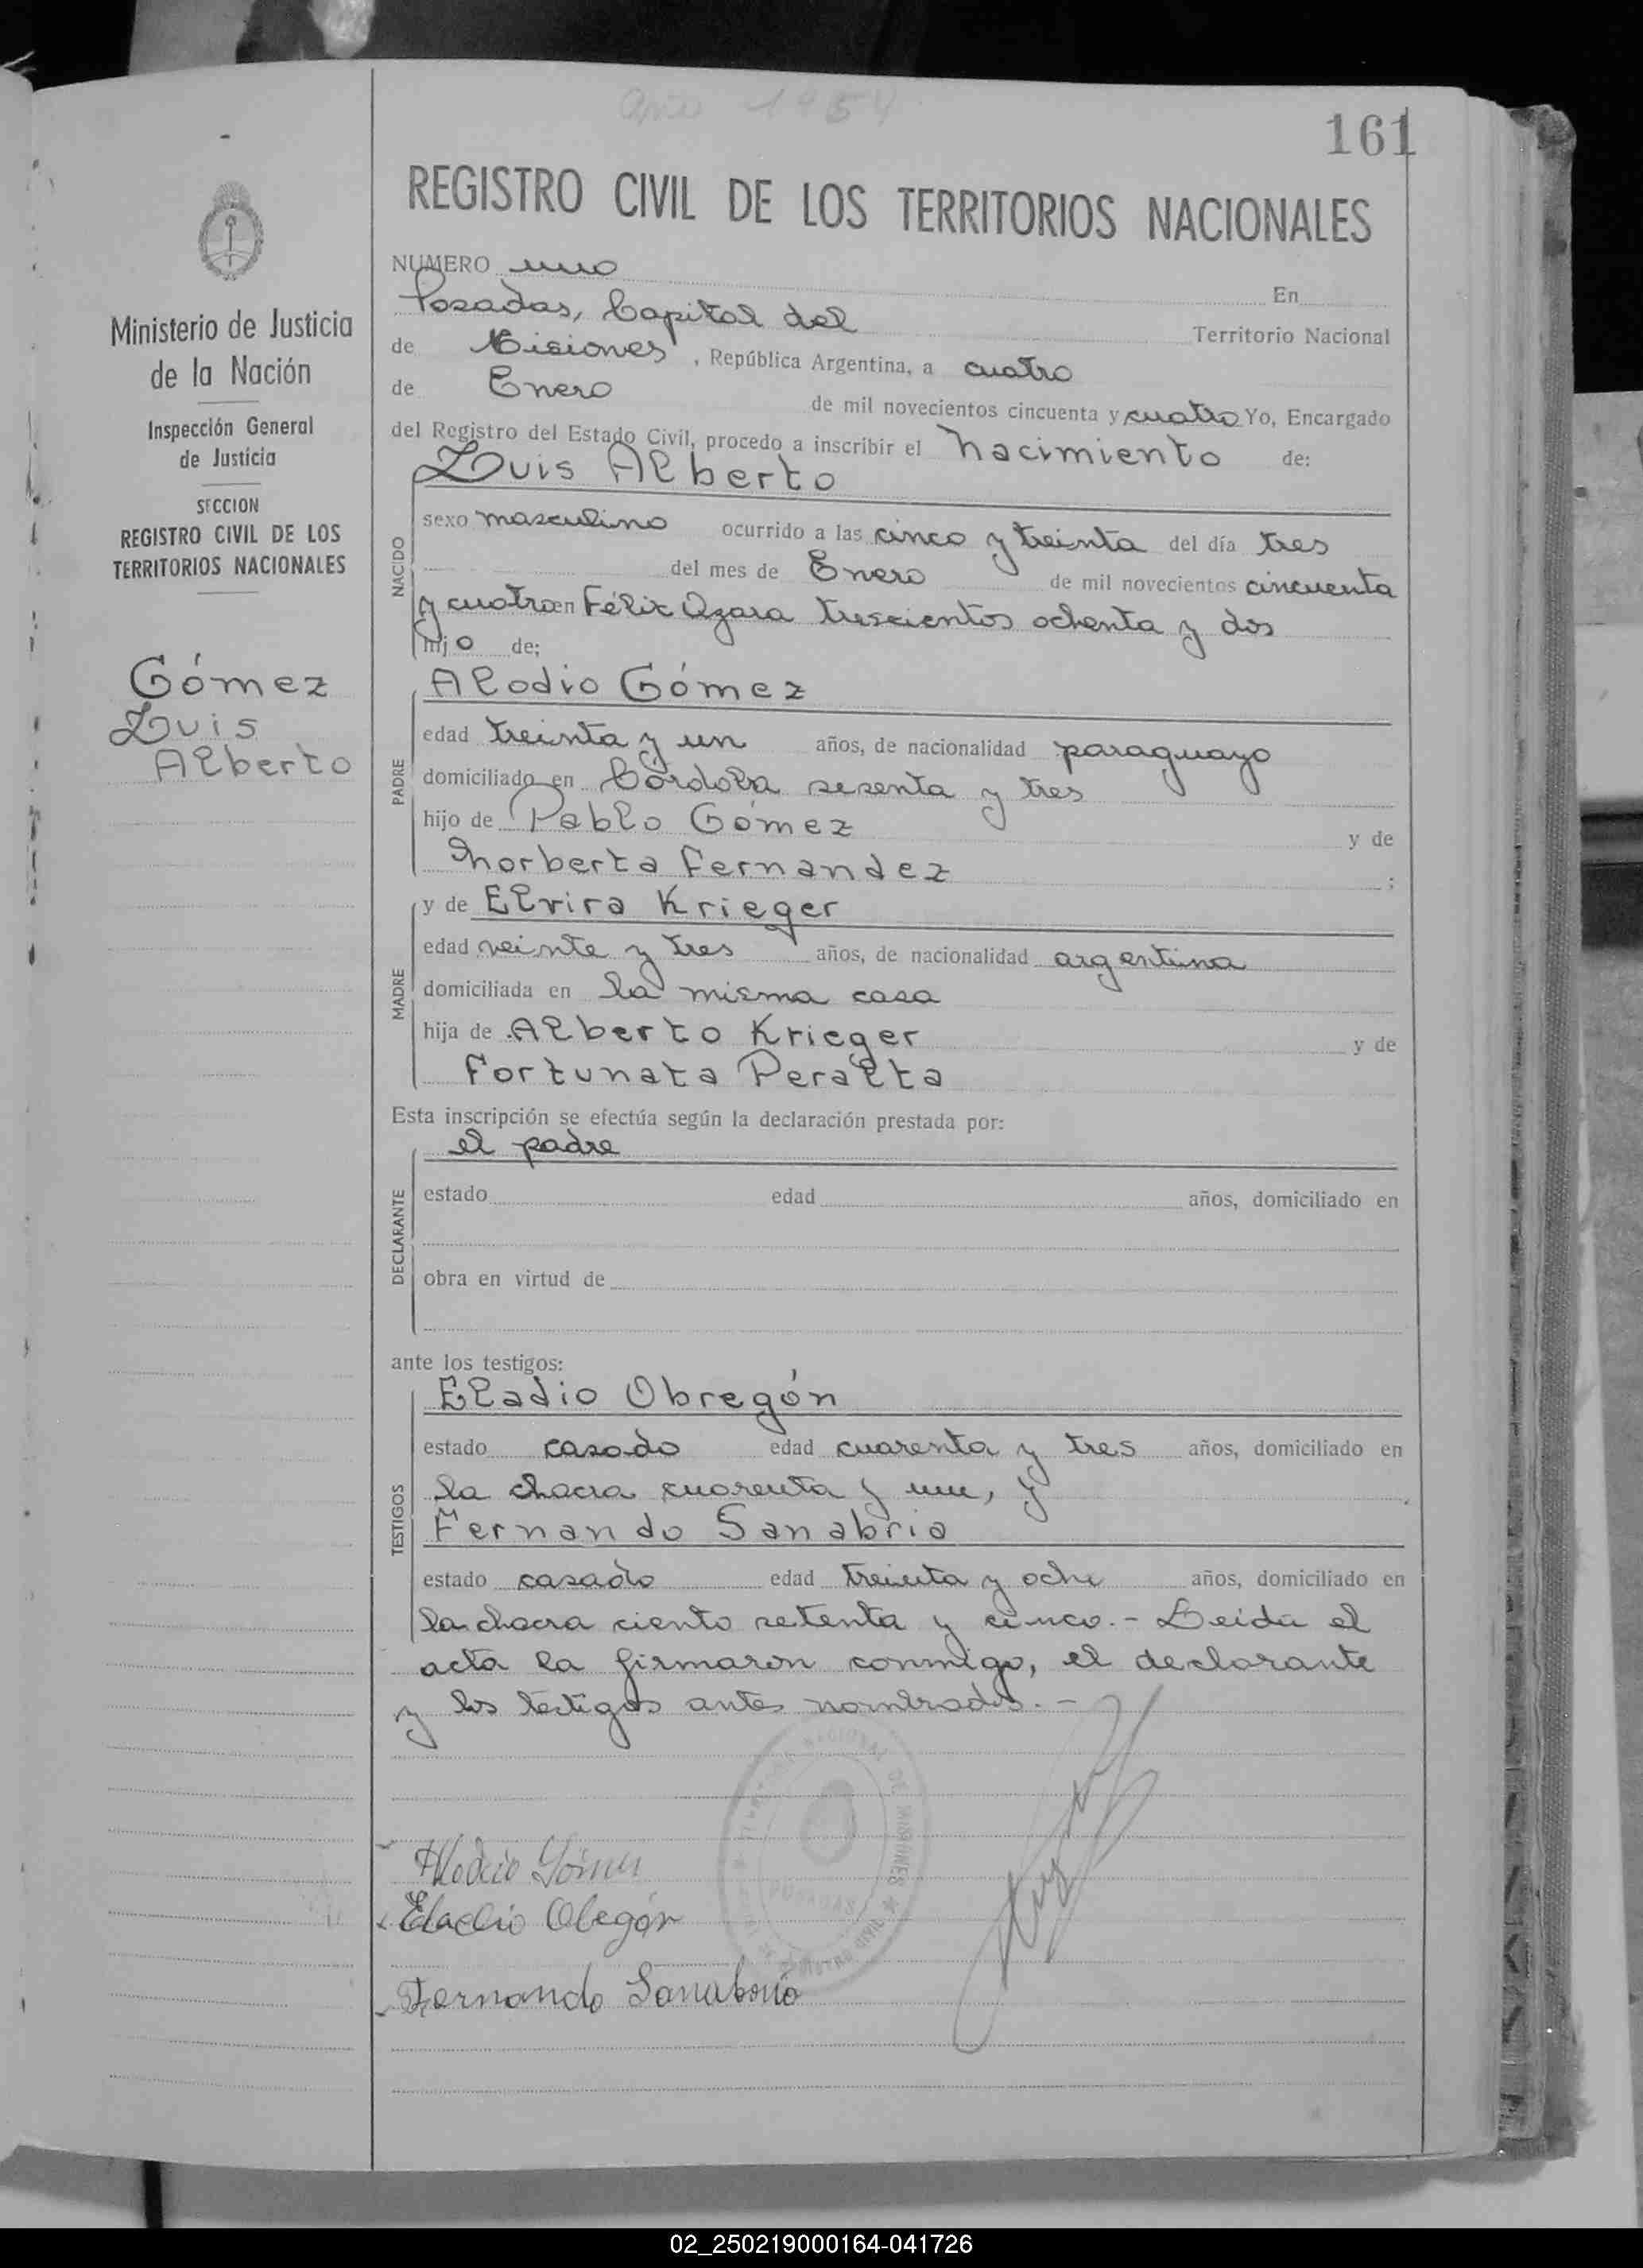 Año 1954
161
REGISTRO CIVIL DE LOS TERRITORIOS NACIONALES
Ministerio de Justicia
de la Nación
Inspección General
de Justicia
SECCION
REGISTRO CIVIL DE LOS
TERRITORIOS NACIONALES
Gómez
Luis
Alberto
NUMERO uno En
Posadas, Capital del Territorio Nacional
de Misiones, República Argentina, a cuatro
de Enero de mil novecientos cincuenta y cuatro Yo, Encargado
del Registro del Estado Civil, procedo a inscribir el nacimiento de:
Luis Alberto
NACIDO
sexo masculino ocurrido a las cinco y treinta del día tres
del mes de Enero de mil novecientos cincuenta
y cuatro en Félix Azara trescientos ochenta y dos
hijo de;
Alodio Gómez
PADRE
edad treinta y un años, de nacionalidad paraguayo
domiciliado en Córdoba sesenta y tres
hijo de Pablo Gómez y de
Norberta Fernandez ;
y de Elvira Krieger
MADRE
edad veinte y tres años, de nacionalidad argentina
domiciliada en la misma casa
hija de Alberto Krieger y de
Fortunata Peralta
Esta inscripción se efectúa según la declaración prestada por:
el padre
DECLARANTE
estado edad años, domiciliado en
obra en virtud de
ante los testigos:
Eladio Obregón
TESTIGOS
estado casado edad cuarenta y tres años, domiciliado en
la chacra cuarenta y una, y
Fernando Sanabria
estado casado edad treinta y ocho años, domiciliado en
la chacra ciento setenta y cinco.- Leida el
acta la firmaron conmigo, el declarante
y los testigos antes nombrados.-
Alodio Gómez
Eladio Obregón
Fernando Sanabria
POSADAS
02_250219000164-041726